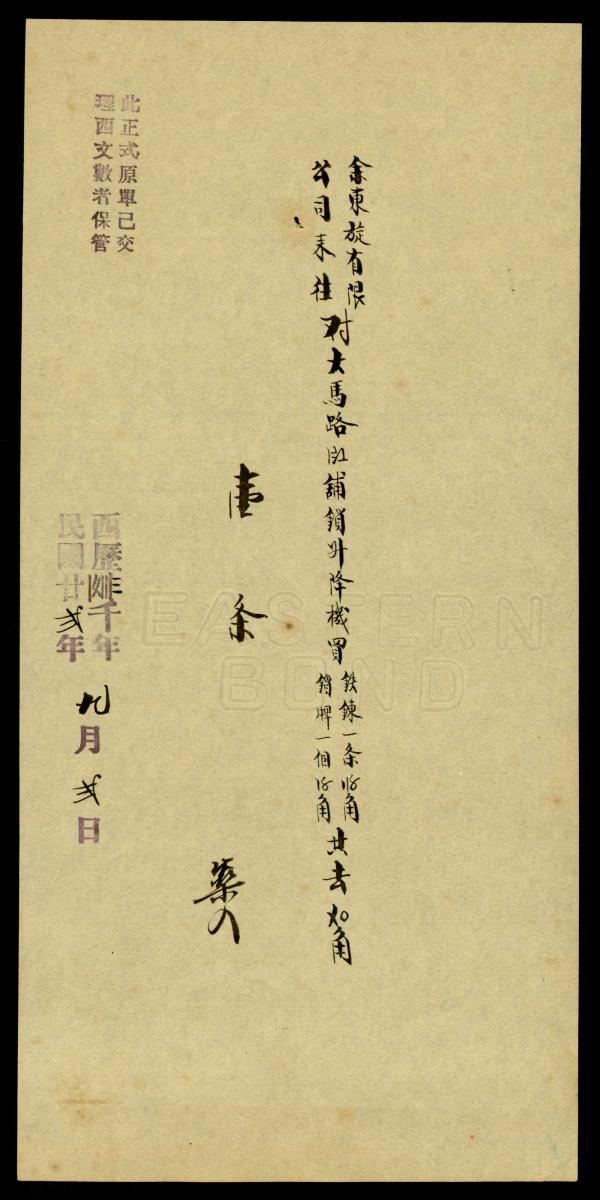 余東旋有限
公司来往
对大馬路舖鎖外降機買
鉄鍊一条角
鎖牌一個角
共去角
壹条
西歷千年
民國廿弍年
九月弍日
此正式原單已交
理西文數者保管
EASTERN
BOND